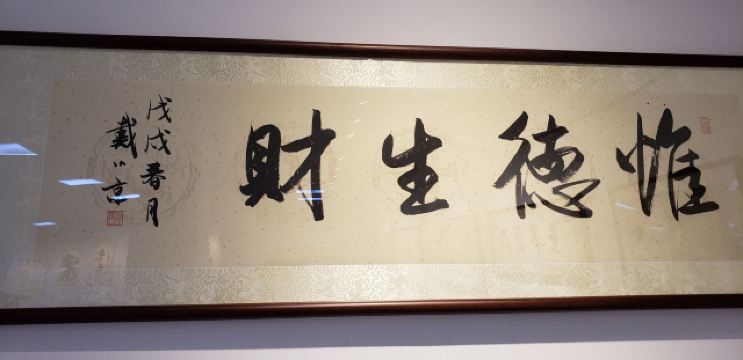 惟德生財
戊戌春月
戴小京